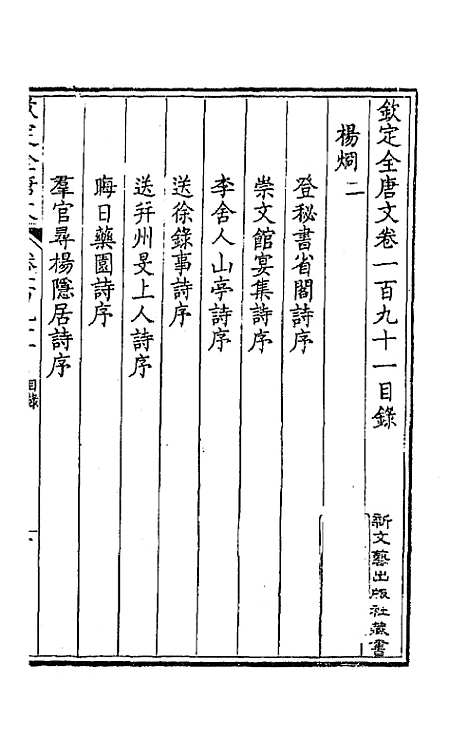 欽定全唐文卷一百九十一目錄
楊烱二
登秘書省閣詩序
崇文館宴集詩序
李舍人山亭詩序
送徐錄事詩序
送幷州旻上人詩序
晦日藥園詩序
羣官尋楊隱居詩序
目錄
新文藝出版社藏書